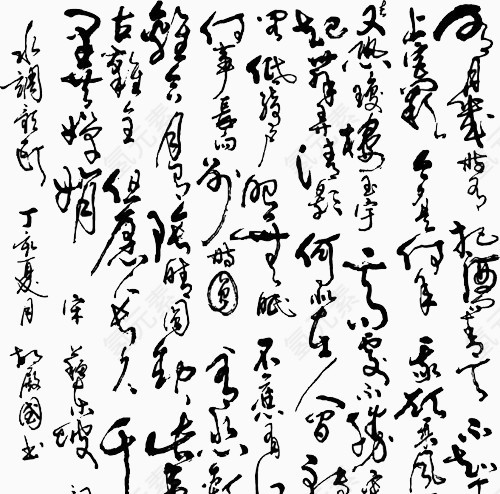 明月幾時有把酒問青天不知
上宮闕今夕是何年我欲乘風
又恐瓊樓玉宇高處不勝
起舞弄清影何似在人間轉
閣低綺戶照無眠不應有
何事長向別時圓人有悲歡
離合月有陰晴圓缺此事
古難全但願人長久千
里共嬋娟
宋蘇東坡詞
水調歌頭丁亥夏月國書